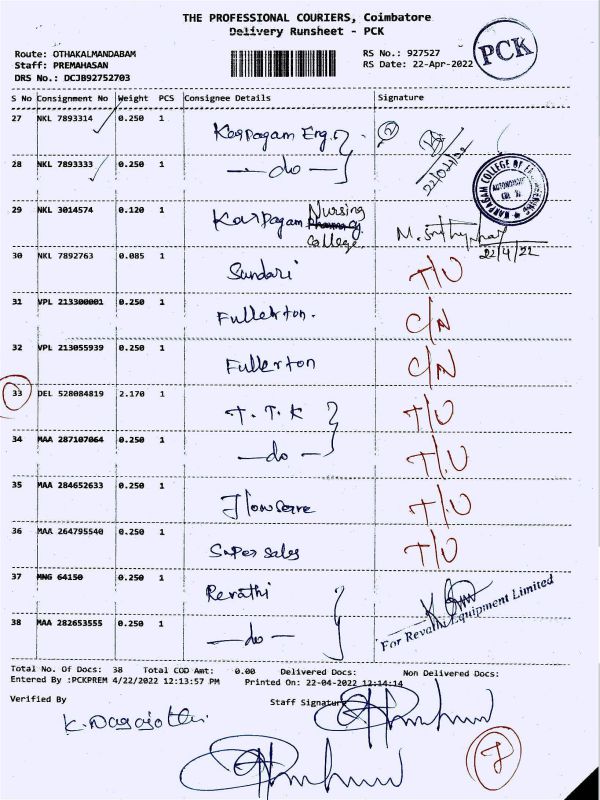 THE PROFESSIONAL COURIERS, Coimbatore
Delivery Runsheet - PCK
PCK
Route: OTHAKALMANDABAM
Staff: PREMAHASAN
DRS No.: DCJB92752703
RS No.: 927527
RS Date: 22-Apr-2022
S No Consignment No Weight PCS Consignee Details Signature
27 NKL 7893314 0.250 1 Karpagam Eng. 2
28 NKL 7893333 0.250 1 —do— 22/04/22
KARPAGAM COLLEGE OF ENGINEERING
AUTONOMOUS
29 NKL 3014574 0.120 1 Karpagam Nursing College
22/4/22
30 NKL 7892763 0.085 1 Sundari T/U
31 VPL 213300001 0.250 1 Fullerton. C/N
32 VPL 213055939 0.250 1 Fullerton C/N
33 DEL 528084819 2.170 1 T.T.K T/U
34 MAA 287107064 0.250 1 —do— T/U
35 MAA 284652633 0.250 1 Flowserve T/U
36 MAA 264795540 0.250 1 Super sales T/U
37 MNG 64150 0.250 1 Revathi
38 MAA 282653555 0.250 1 —do—
For Revathi Equipment Limited
Total No. Of Docs: 38 Total COD Amt: 0.00 Delivered Docs: Non Delivered Docs:
Entered By :PCKPREM 4/22/2022 12:13:57 PM Printed On: 22-04-2022 12:14:14
Verified By Staff Signature
K. Nagajothi